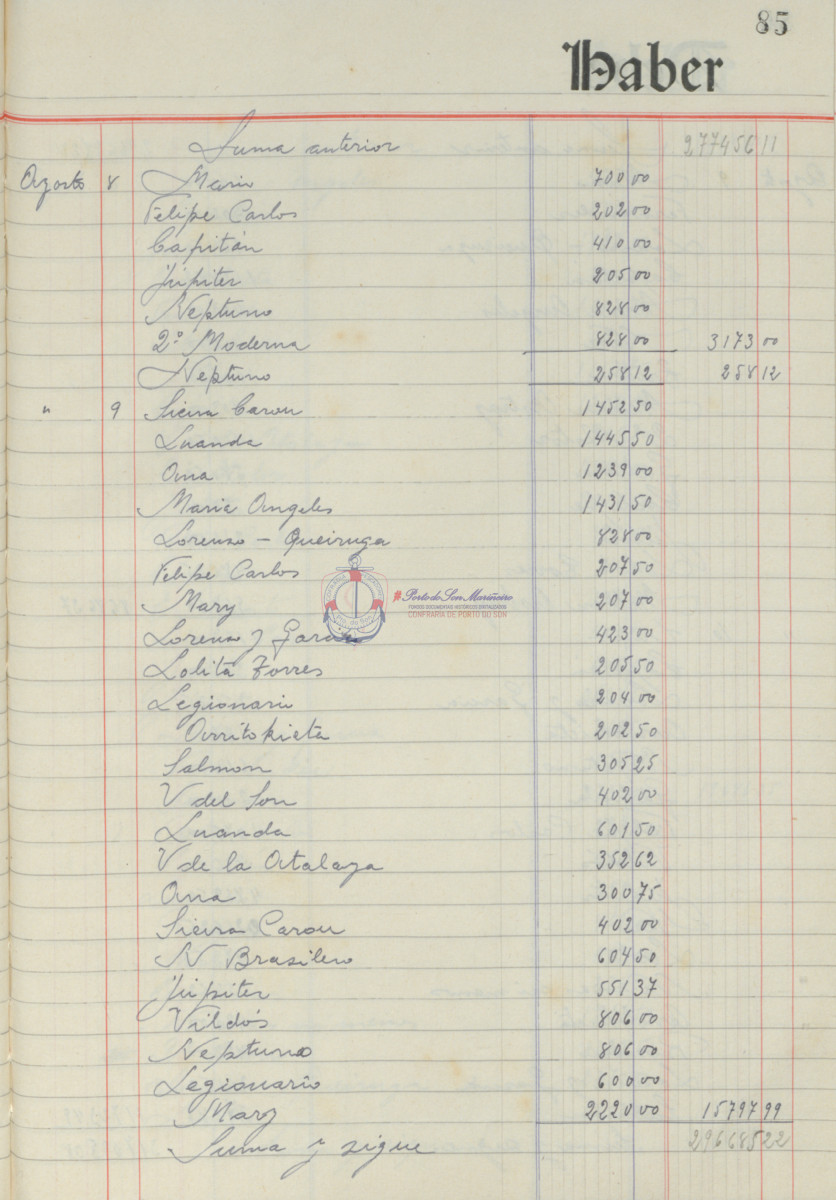 85
Haber
Suma anterior 277456 11
Agosto 8 Mario 700 00
Felipe Carlos 202 00
Capitán 410 00
Júpiter 205 00
Neptuno 828 00
2º Moderna 828 00 3173 00
Neptuno 258 12 258 12
" 9 Sieira Carou 1452 50
Luanda 1445 50
Ana 1239 00
Maria Angeles 1431 50
Lorenzo - Queiruga 828 00
Felipe Carlos 207 50
Mary 207 00
#PortodoSonMariñeiro
FONDOS DOCUMENTAIS HISTÓRICOS DIXITALIZADOS
CONFRARÍA DE PORTO DO SON
Lorenzo y 423 00
Lolita Torres 205 50
Legionario 204 00
Arritokieta 202 50
Salmon 305 25
V del Son 402 00
Luanda 601 50
V de la Atalaya 352 62
Ana 300 75
Sieira Carou 402 00
N Brasileño 604 50
Júpiter 551 37
Vildós 806 00
Neptuno 806 00
Legionario 600 00
Mary 2220 00 15797 99
Suma y sigue 296685 22